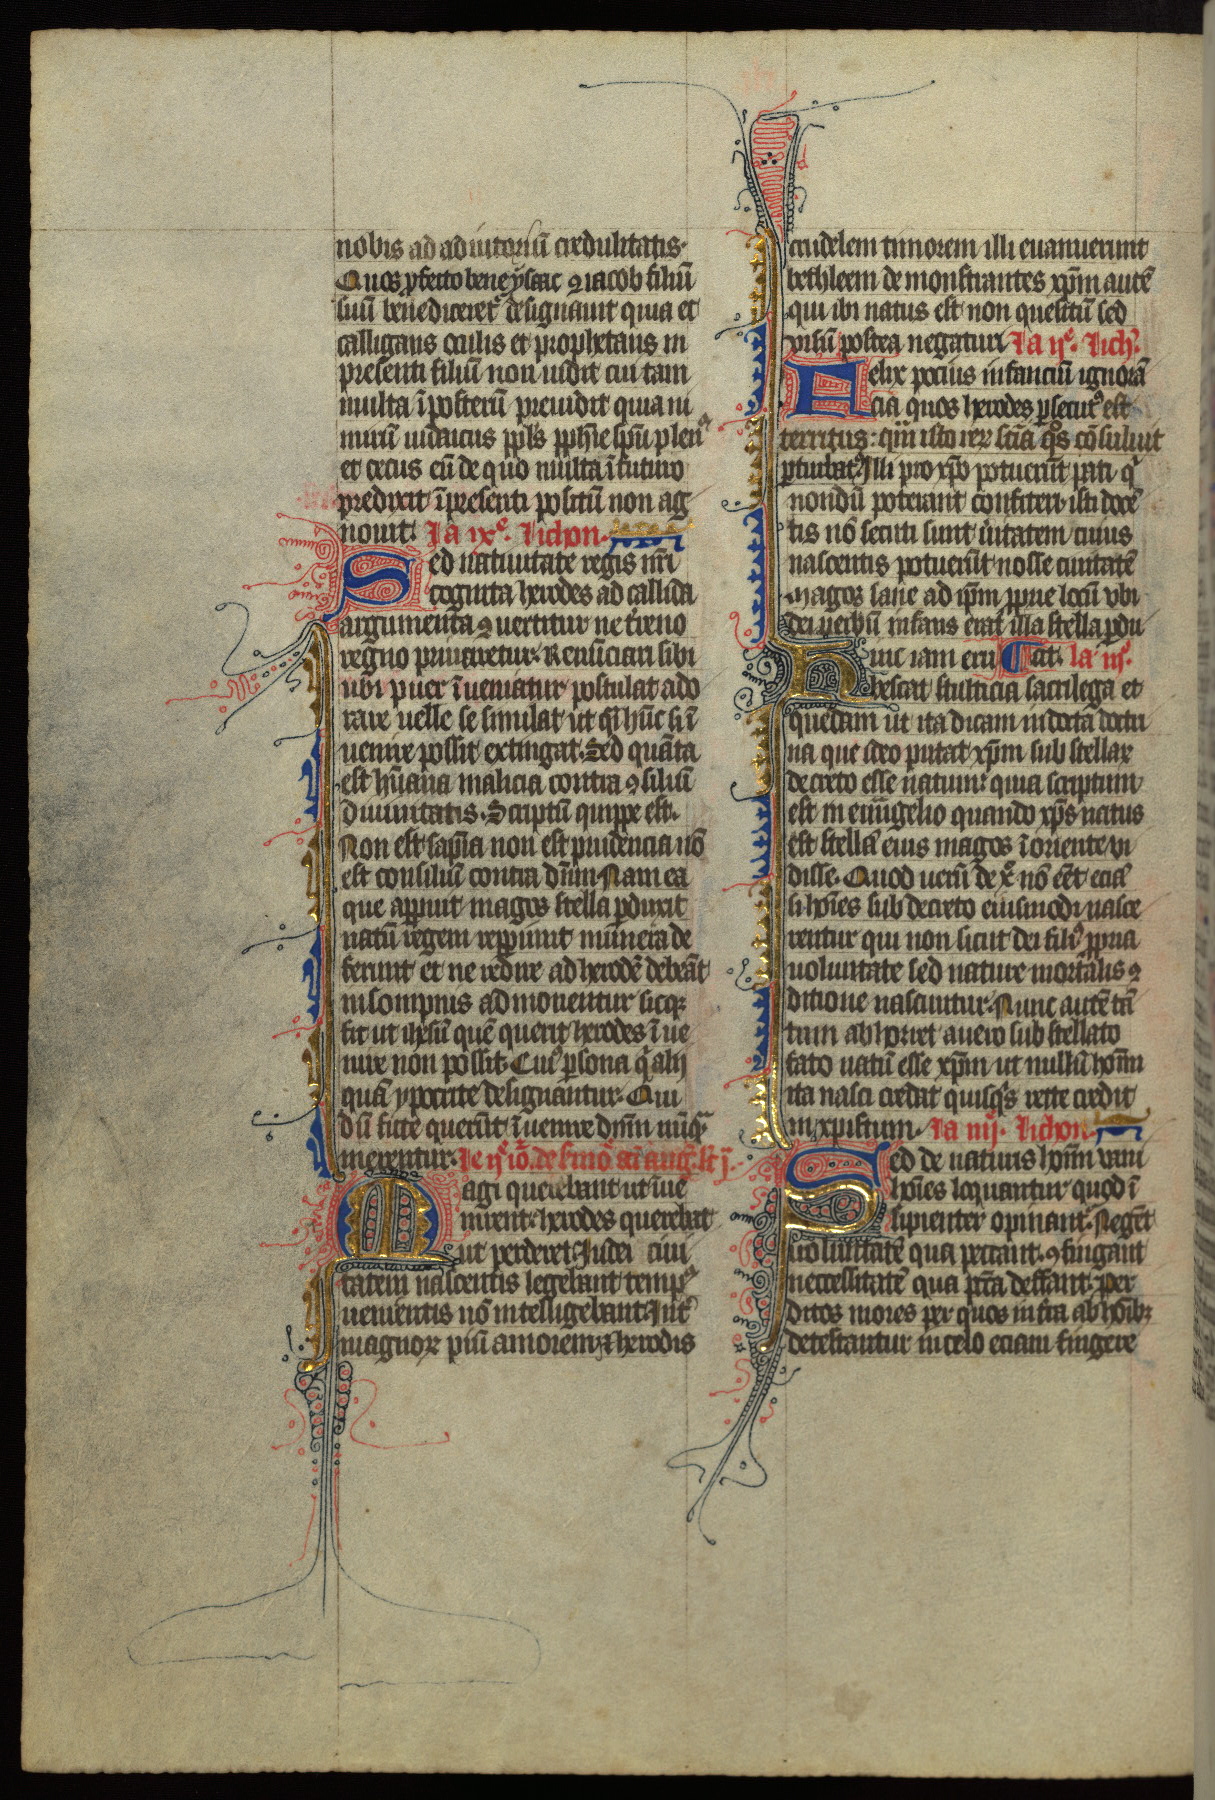 nobis ad adiutoriū credulitatis.
Quos ꝓfecto bene ysaac ⁊ iacob filiū
suū benediceret designauit quia et
calligans oculis et prophetans in
presenti filiū non uidit cui tam
multa ī posterū preuidit quia ni
mirū iudaicus ppls pphīe spū plen⁹
et cecus eū de quo multa ī futuro
predixit ī presenti positū non ag
nouit. la ixᵉ. licħon.
Sed natiuitate regis nr̄i
cognita herodes ad callida
argumenta ꝯuertitur ne t̓reno
regno priuaretur. Renūciari sibi
ubi puer īueniatur postulat ado
rare uelle se simulat ut q̄i hūc si ī
uenire possit extingat. Sed quāta
est hūana malicia contra ꝯsiliū
diuinitatis. Scriptū quippe est.
Non est sapīa non est prudencia nō
est consiliū contra dn̄m. Nam ea
que apparuit magos stella ꝑduxit
natū regem repp̄iunt munera de
ferunt et ne redire ad herodē debeāt
in sompnis admonentur sicqꝫ
fit ut ihesū quē querit herodes īue
nire non possit. Cui⁹ ꝑsona q̄ alij
quā ypocrite designantur. Qui
dū ficte querūt īuenire dn̄m nūqᵃ
merentur. le ijᵉ iō. de s̄mōe sc̄i aug. lc̄ j.
Magi querebant ut īue
nirent. herodes querebat
ut perderet. Iudei ciui
tatem nascentis legebant temp⁹
uenientis nō intelligebant. Int̓
magnoꝝ piū amorem ⁊ herodis
crudelem timorem illi euanuerunt
bethleem demonstrantes xp̄m autē
qui ibi natus est non quesitū sed
uisū postea negaturi la ijᵉ. licħ.
Felix pocius infanciū ignorā
cia quos herodes ꝑsecut⁹ est
territus: q̄m isto rex sc̄ia q̊s cōsuluit
ꝑturbat⁹. Illi pro xp̄o potuerūt pati q̓
nondū poterant confiteri. isti docē
tis nō secuti sunt ūitatem cuius
nascentis potuerūt nosse ciuitatē
Magos sane ad ip̄m ꝓprie locū vbi
dei uerbū infans erat illa stella ꝑdu
Hinc iam eru Cit. la iijᵃ.
bescat stulticia sacrilega et
quedam ut ita dicam indocta doctri
na que ideo putat xp̄m sub stellaꝝ
decreto esse natum. quia scriptum
est in euūgelio quando xp̄s natus
est stellā eius magos ī oriente vi
disse. Quod uerū de xᵒ nō eēt eciā
si hoīes sub decreto eiusmodi nasce
rentur qui non sicut dei fili⁹ ꝓpria
uoluntate sed nature mortalis ꝯ
ditione nascuntur. Nunc autē tā
tum abhorret a uero sub stellato
fato natū esse xp̄m ut nullū hoīm
ita nasci credat quisq̄s recte credit
in xpistum. la iiijᵃ. licħon.
Sed de naturis hoīm vani
hoīes loquantur quod ī
sipienter opinant᷑. Negēt
uoluntatē qua peccant. ꝯfingant
neccessitatē qua pc̄ta deffant. per
ditos mores per quos infra ab hoībꝫ
detestantur in celo eciam fingere